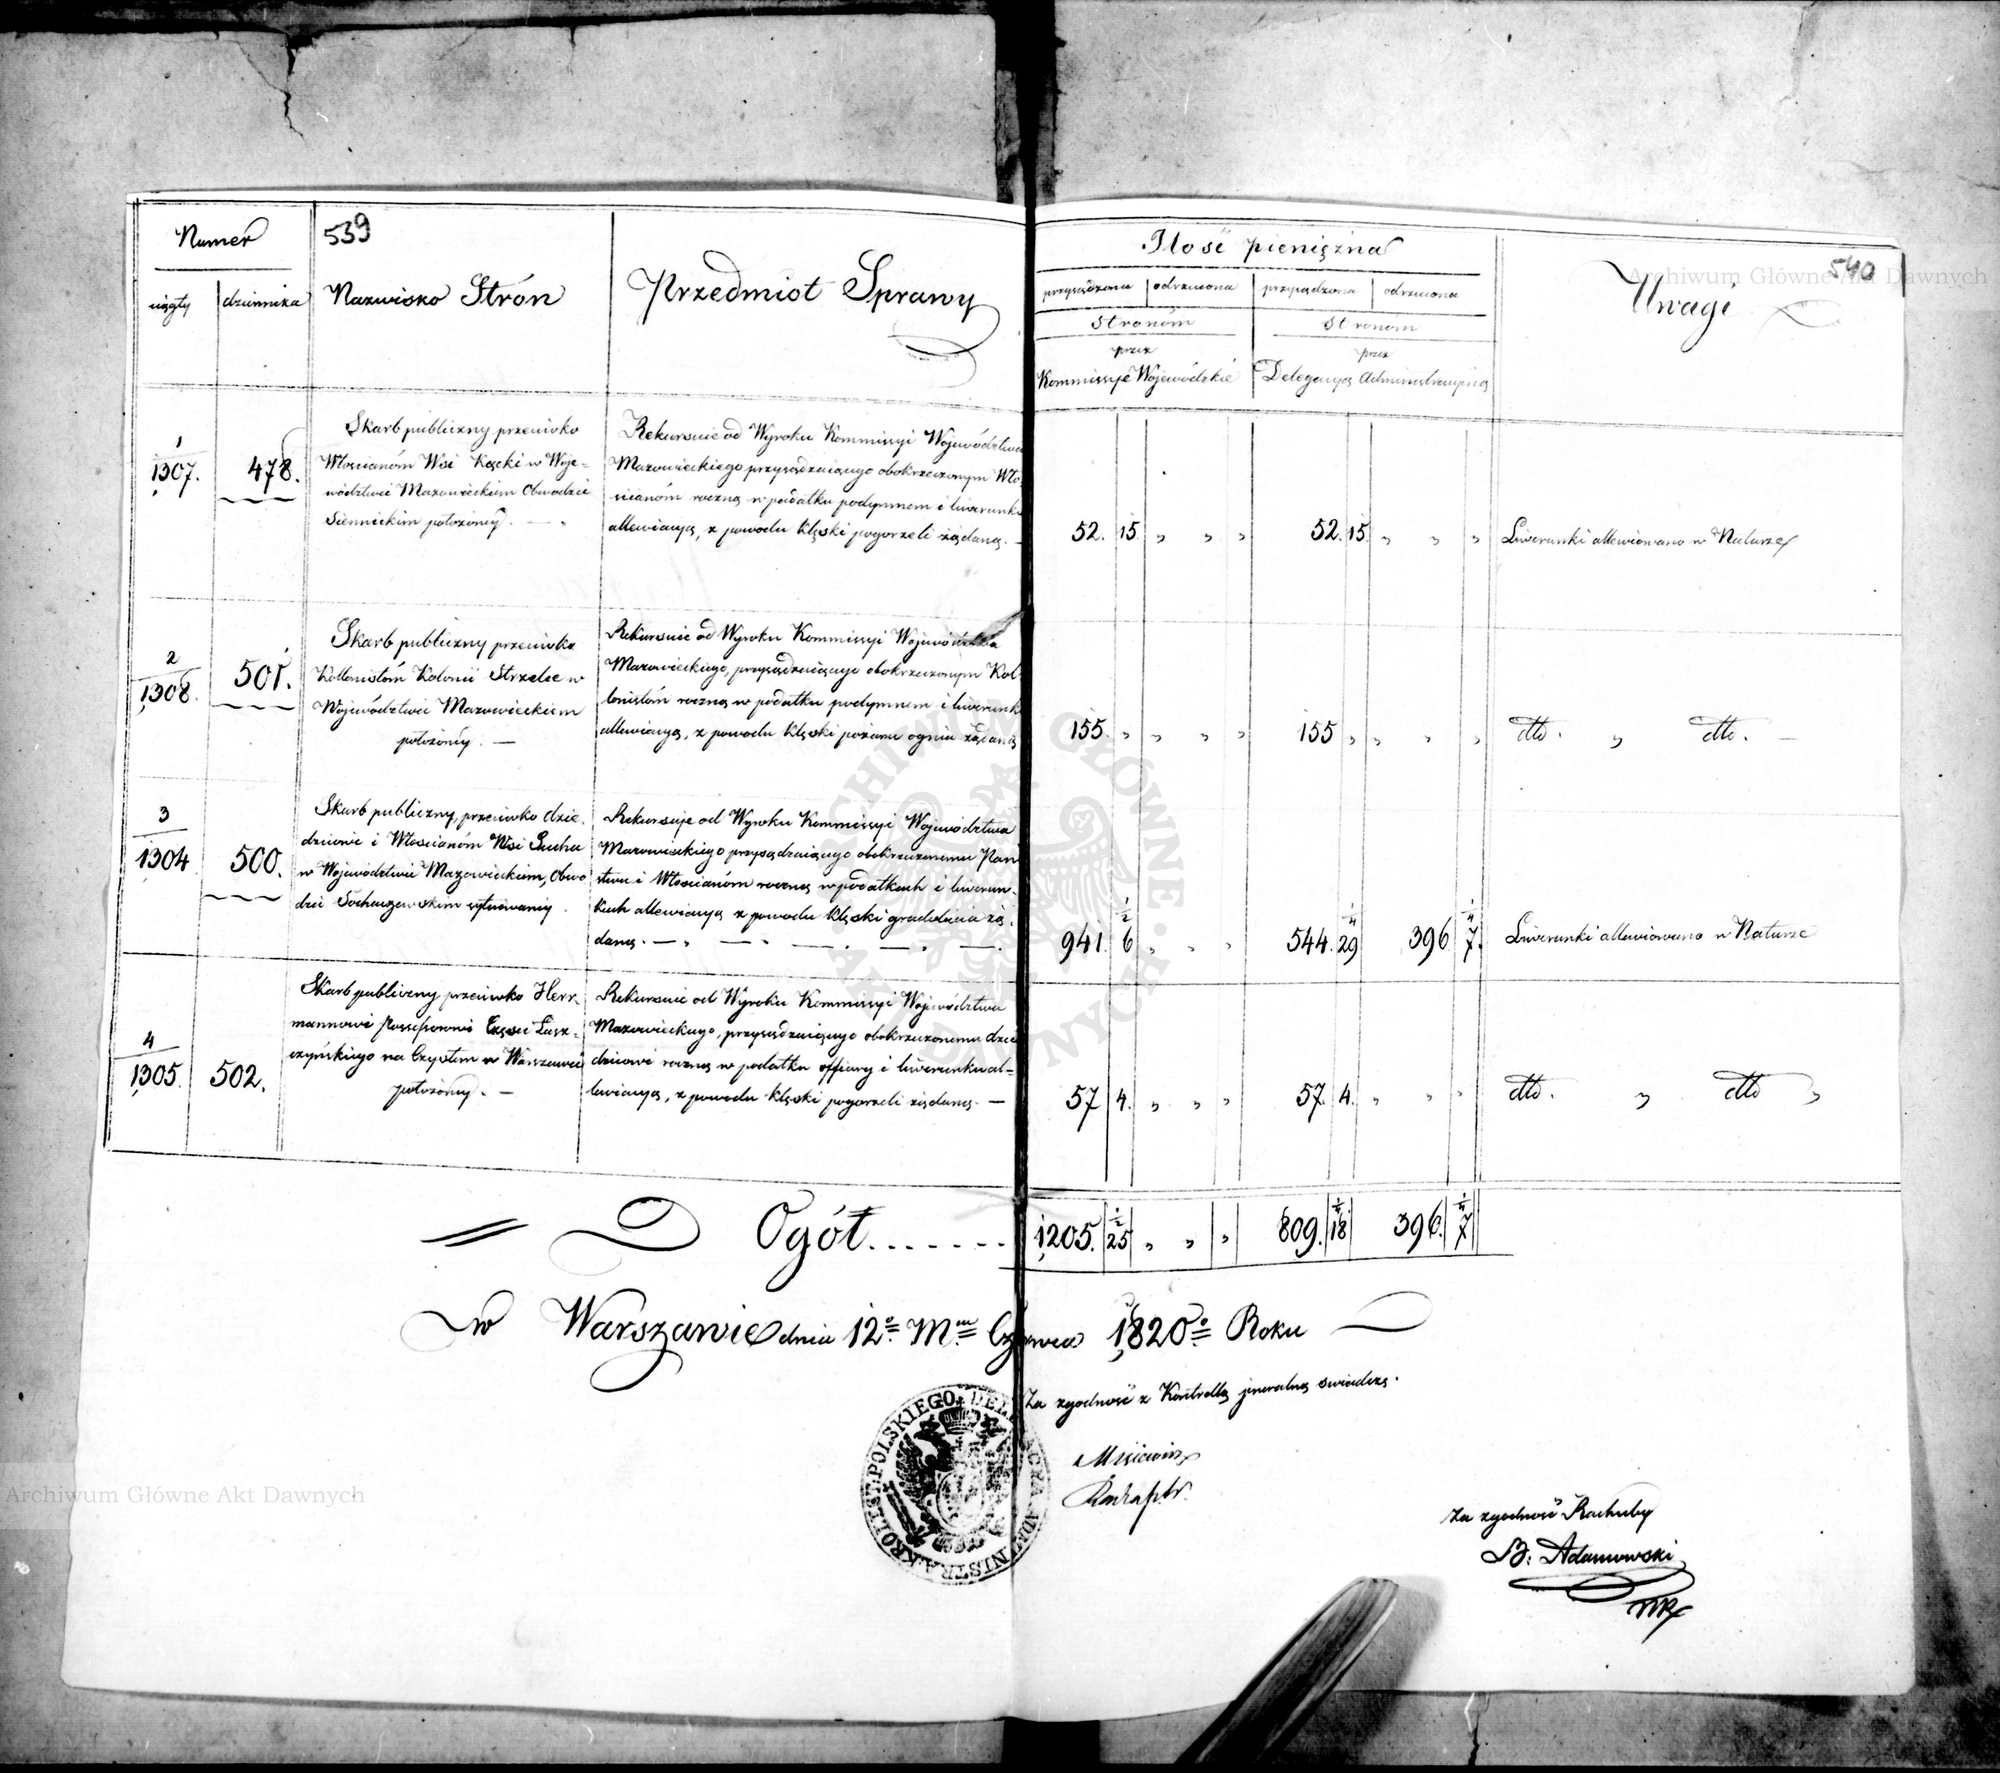 539
540
Numer
ciągły dziennika
Nazwisko Strón
Przedmiot Sprawy
Ilość pieniężna
przysądzona odrzucona przysądzona odrzucona
Stronóm Stronóm
przez przez
Kommissye Wojewódzkie Delegacyą Administracyiną
Uwagi
1
1307. 478.
Skarb publiczny przeciwko
Włościanóm Wsi Kącki w Woje-
wództwie Mazowieckim Obwodzie
Siennickim położoney.
Rekursuie od Wyroku Kommissyi Województwa
Mazowieckiego przysądzaiącego obokrzeczonym Wło-
ścianóm roczną w podatku podymnem i liwerunku
allewiacyą, z powodu klęski pogorzeli żądaną.
52. 15. „ „ „ 52. 15. „ „ „
Liwerunki allewiowano w Naturze
2
1308. 501.
Skarb publiczny przeciwko
Kollonistóm Kolonii Strzelce w
Województwie Mazowieckiem
położoney. —
Rekursuie od Wyroku Kommissyi Województwa
Mazowieckiego, przysądzaiącego obokrzeczonym Kol-
lonistóm roczną w podatku podymnem i liwerunku
allewiacyą, z powodu klęski pożaru ognia żądaną
155. „ „ „ „ 155 „ „ „ „
dtto. „ dtto. —
3
1304 500.
Skarb publiczny, przeciwko dzie-
dzicowi i Włościanóm Wsi Sucha
w Województwie Mazowieckiem, Obwo
dzie Sochaczewskim sytuowaney.
Rekursuje od Wyroku Kommissyi Województwa
Mazowieckiego przysądzaiącego obokrzeczonemu Pań
stwu i Włościanóm roczną w podatkach i liwerun-
kach allewiacyą z powodu klęski gradobicia żą-
daną. —
941. 6 1/2 „ „ „ 544. 29 1/4 396 7. 1/4
Liwerunki allewiowano w Naturze
4
1305. 502.
Skarb publiczny przeciwko Herr-
mannowi Possessorowi Części Łusz-
czyńskiego na Czystem w Warszawie
położoney. —
Rekursuie od Wyroku Kommissyi Województwa
Mazowieckiego, przysądzaiącego obokrzeczonemu dzie
dzicowi roczną w podatku offiary i liwerunku al-
lewiacyą, z powodu klęski pogorzeli żądaną. —
57 4. „ „ „ 57. 4. „ „ „
dtto. „ dtto „
Ogół....... 1205. 25 1/2 „ „ „ 809. 18 1/4 396. 7 1/4
w Warszawie dnia 12º Mca Czerwca 1820º Roku
Za zgodność z Kontrollą jeneralną świadczę.
Za zgodność Rachuby
B: Adamowski
KRÓLEST: POLSKIEGO DELEGACYA ADMINISTRA:
ARCHIWUM GŁÓWNE AKT DAWNYCH
Archiwum Główne Akt Dawnych
Archiwum Główne Akt Dawnych